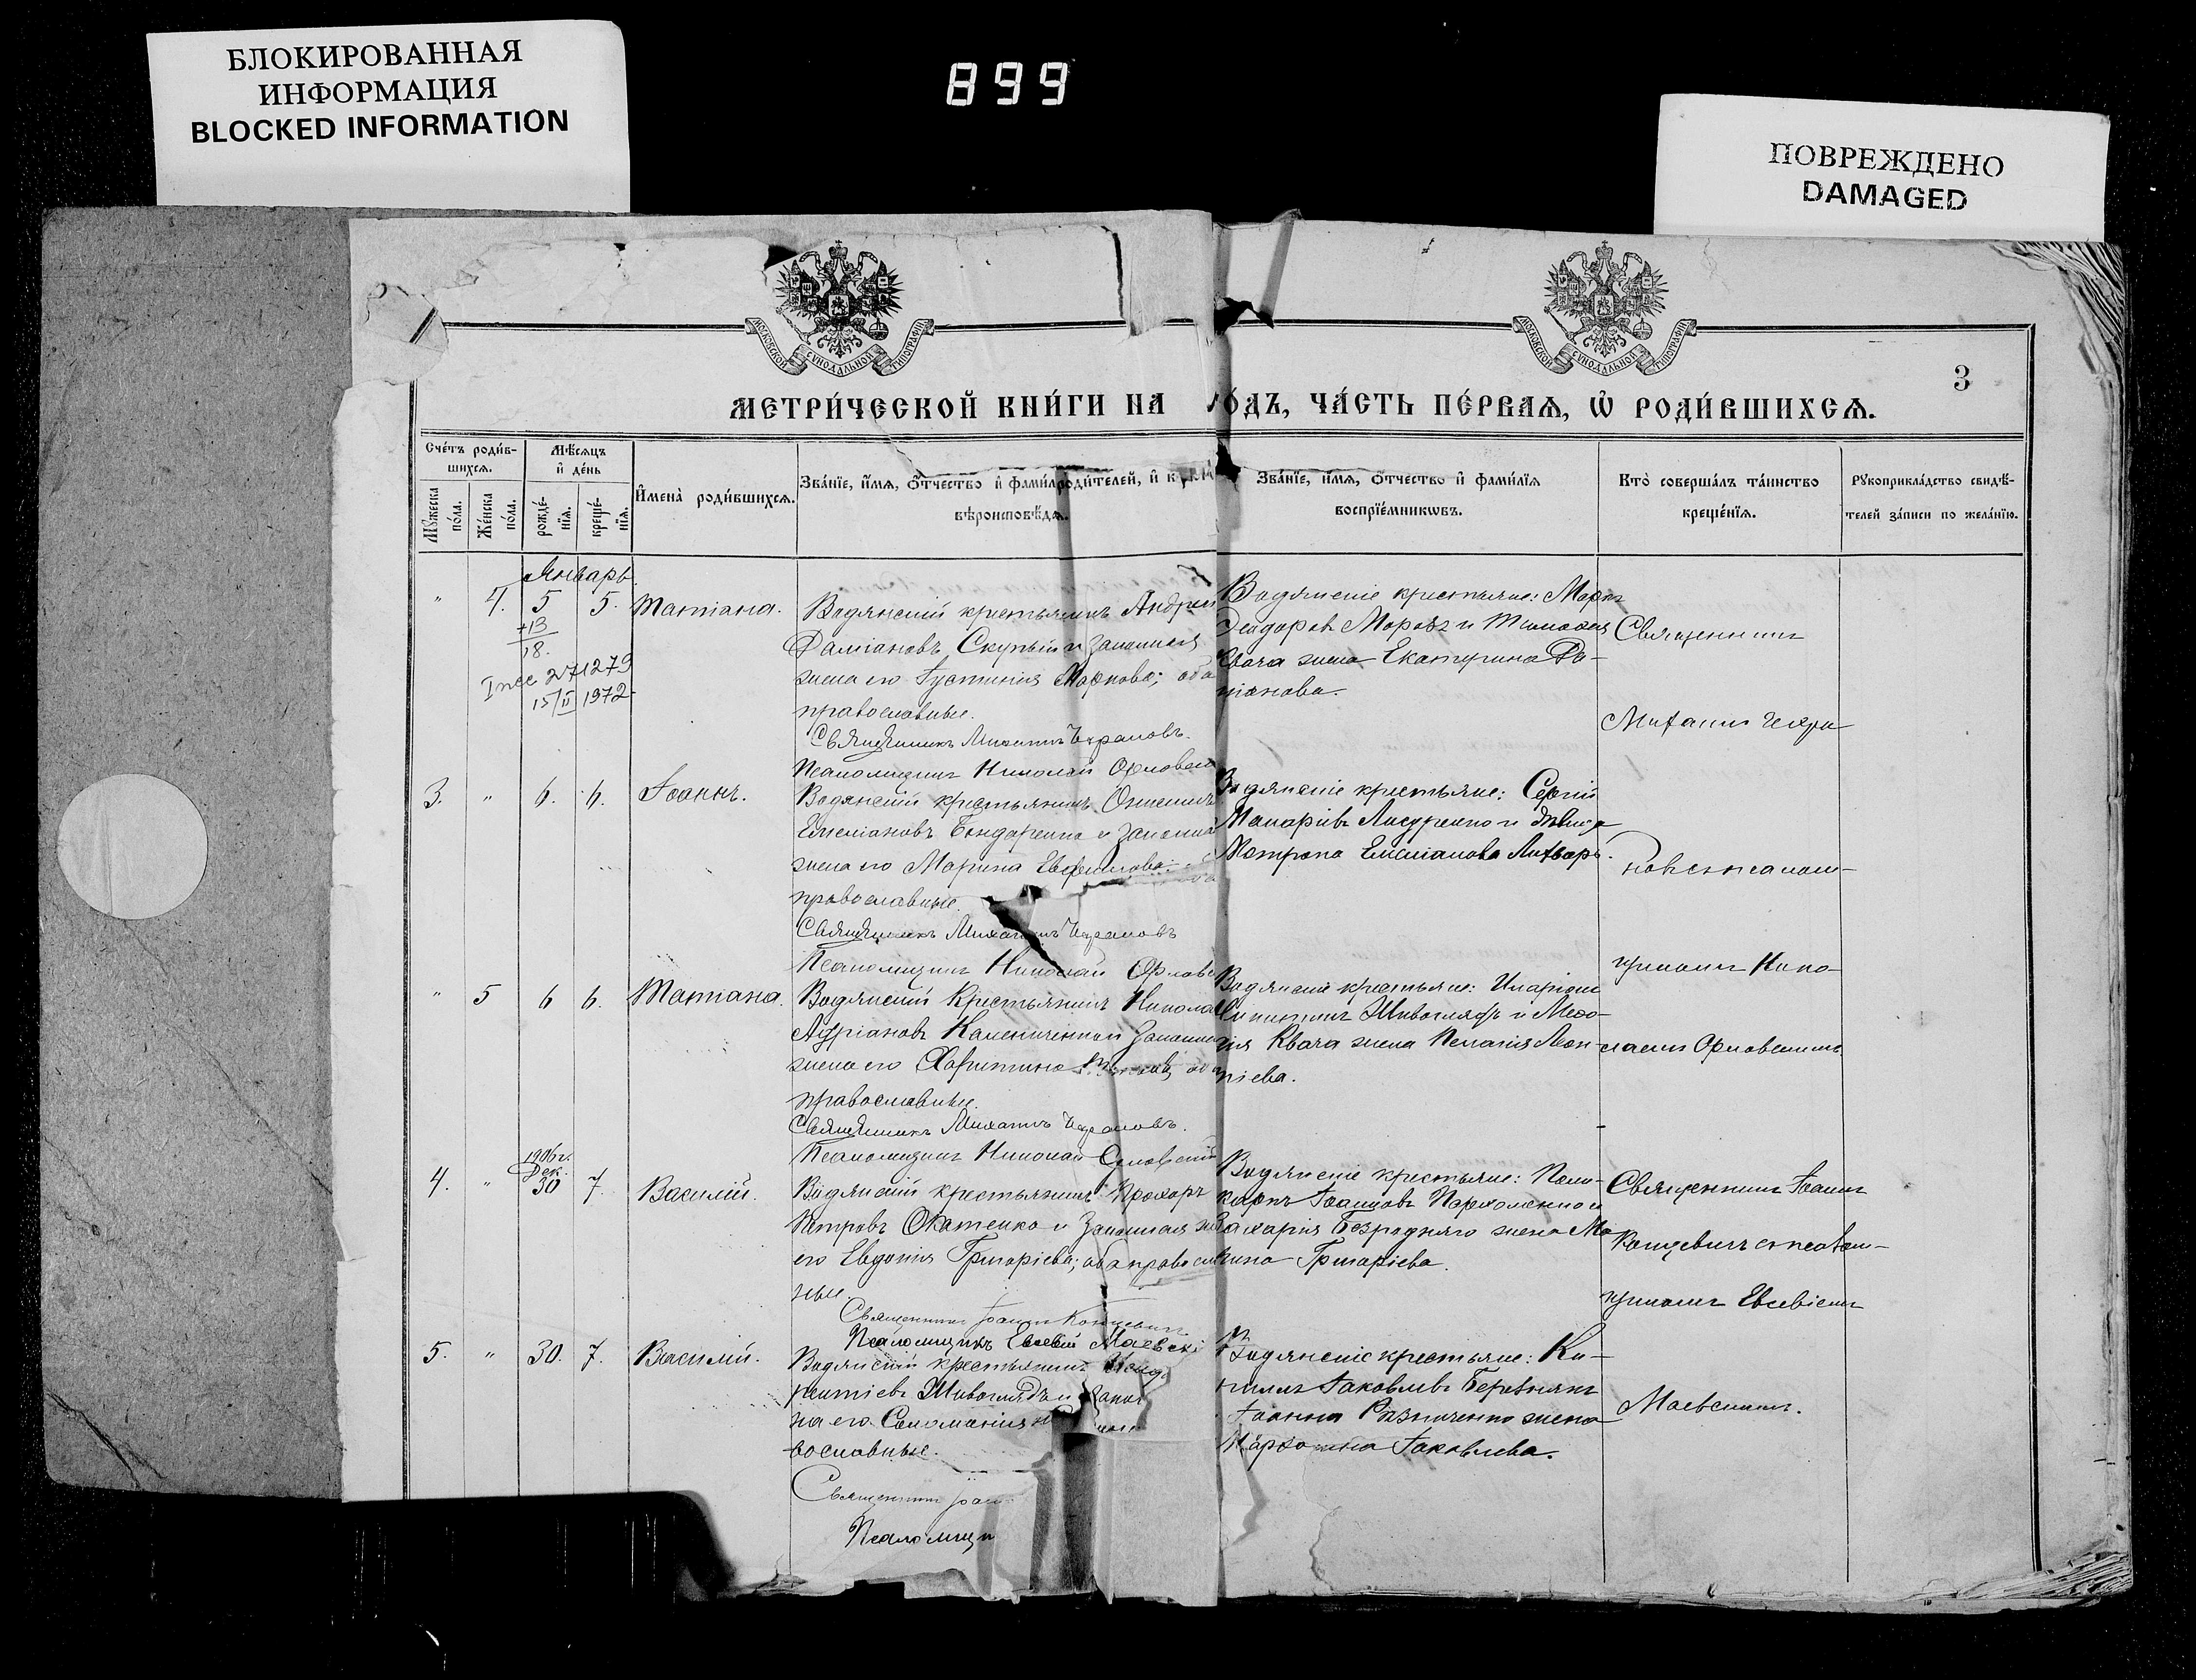 БЛОКИРОВАННАЯ
ИНФОРМАЦИЯ
BLOCKED INFORMATION
899
ПОВРЕЖДЕНО
DAMAGED
МОСКОВСКОЙ СѴНОДАЛЬНОЙ ТИПОГРАФІИ
МОСКОВСКОЙ СѴНОДАЛЬНОЙ ТИПОГРАФІИ
3
МЕТРИ́ЧЕСКОЙ КНИ́ГИ НА
ГО́ДЪ, ЧА́СТЬ ПЕ́РВАѦ, Ѽ РОДИ́ВШИХСѦ.
Сче́тъ роди́в-
шихсѧ.
Мꙋжеска
по́ла.
Же́нска
по́ла.
Мѣ́сѧцъ
и҆ де́нь
рожде́-
нїѧ.
креще́-
нїѧ.
И҆мена̀ роди́вшихсѧ.
Зва́нїе, и҆́мѧ, ѻ҆́тчество и҆ фами́лїѧ роди́телей, и҆ к
вѣроисповѣ́данїѧ.
Зва́нїе, и҆́мѧ, ѻ҆́тчество и҆ фами́лїѧ
воспрїе́мникѡвъ.
Кто̀ соверша́лъ та́инство
креще́нїѧ.
Рꙋкоприкла́дство свидѣ́-
телей за́писи по жела́нїю.
Январь
" 4. 5 5. Татіана.
+13
18.
271279
15/II 1972
Водянскій крестьянинъ Андрей
Даміановъ Скупый и законная
жена его Іустинія Маркова; оба
православные.
Священникъ Михаилъ
Псаломщикъ Николай Орловск
Водянскіе крестьяне: Маркъ
Ѳеодоровъ Морозъ и Тимоѳея
Квача жена Екатерина Да-
міанова.
Священникъ
Михаилъ
3. " 6. 6. Іоаннъ.
Водянскій крестьянинъ Онисимъ
Емеліановъ Бондаренко и законная
жена его Марина Евфимова;
православные.
Священникъ Михаилъ
Псаломщикъ Николай Орловс
Водянскіе крестьяне: Сергій
Макаріевъ Лисуренко и дѣвица
Мотрона Емеліанова Лихварь.
новъ съ псалом-
щикомъ Нико-
" 5 6 6. Татіана.
Водянскій крестьянинъ Никола
Адріановъ Калениченко и законная
жена его Харитина
православные.
Священникъ Михаилъ
Псаломщикъ Николай Орловскій
Водянскіе крестьяне: Иларіонъ
Никитинъ Живоглядъ и Меѳо-
дія Квача жена Пелагія Леон-
тіева.
лаемъ Орловскимъ.
1906 г.
Дек.
4. " 30 7. Василій.
Водянскій крестьянинъ Прохоръ
Петровъ Охатенко и законная же
его Евдокія Григоріева; оба правосла
ные.
Священникъ Іоаннъ Концевичъ
Псаломщикъ Евсевій Маевскі
Водянскіе крестьяне: Поли-
карпъ Іоанновъ Пархоменко и
Захарія Безроднаго жена Ма-
рина Григоріева.
Священникъ Іоаннъ
Концевичъ съ псалом-
щикомъ Евсевіемъ
5. " 30. 7. Василій.
Водянскій крестьянинъ
Живоглядъ и закон
на его Соломанія
вославные.
Священникъ Іоан
Псаломщи
Водянскіе крестьяне: Ки-
риллъ Іаковлевъ Березнякъ
Іоанна Різниченко жена
Іаковлева.
Маевскимъ.